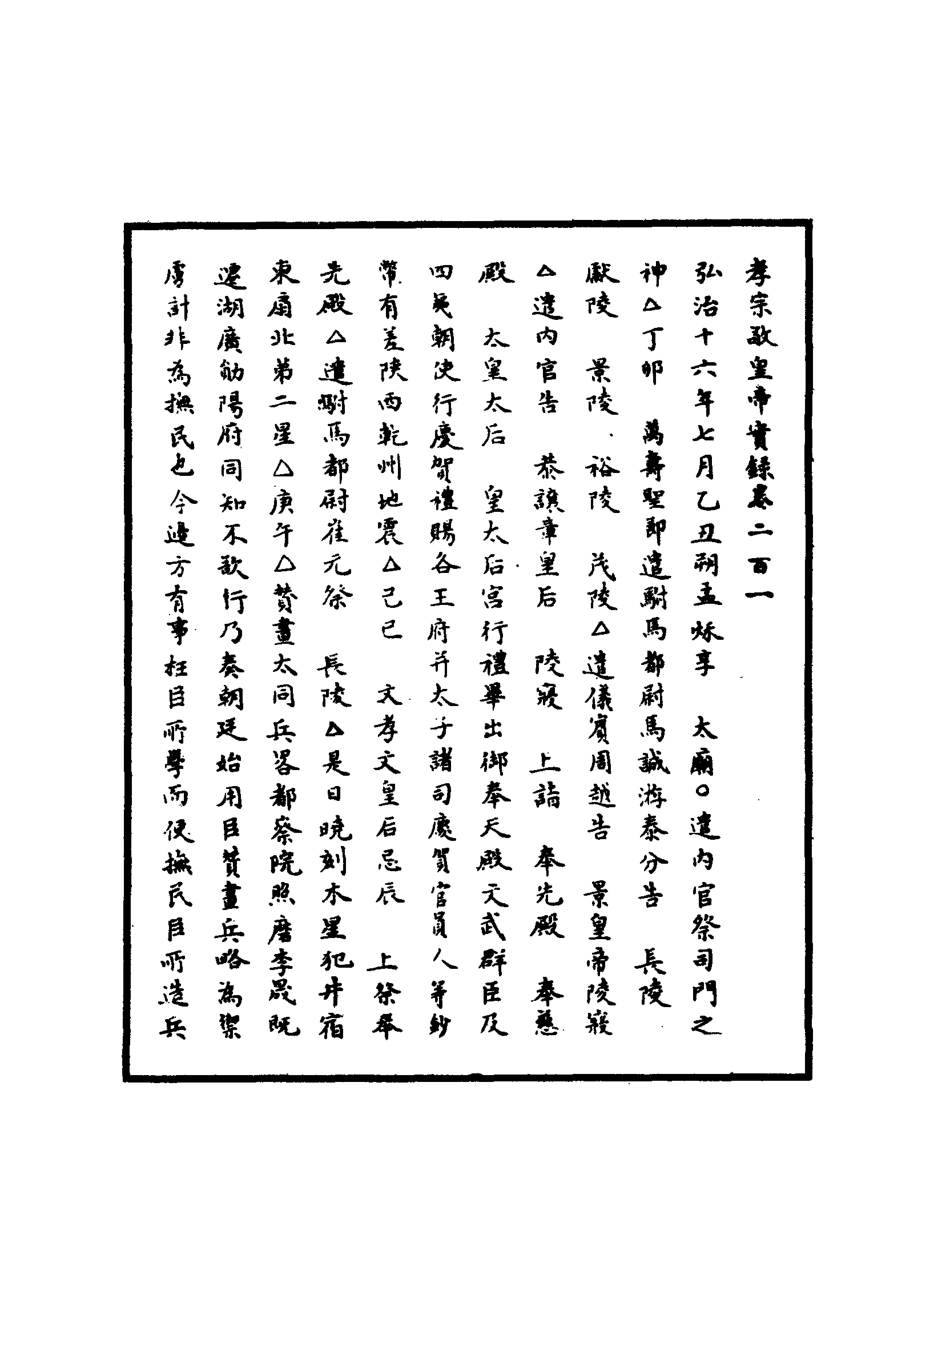 孝宗敬皇帝實錄卷二百一
弘治十六年七月乙丑朔孟烁享　太廟○遣內官祭司門之
神△丁卯　萬壽聖節遣駙馬都尉馬誠游泰分告　長陵
獻陵　景陵　裕陵　茂陵△遣儀賓周越告　景皇帝陵寢
△遣內官告　恭讓章皇后　陵寢　上詣　奉先殿　奉慈
殿　太皇太后　皇太后宮行禮畢出御奉天殿文武群臣及
四夷朝使行慶賀禮賜各王府并太子諸司慶賀官員人等鈔
幣有差陝西乾州地震△己巳　文孝文皇后忌辰　上祭奉
先殿△遣駙馬都尉崔元祭　長陵△是日曉刻木星犯井宿
東扇北第二星△庚午△贊畫太同兵畧都察院照磨李晟既
遷湖廣勛陽府同知不欲行乃奏朝廷始用臣贊畫兵略為禦
虜計非為撫民也今邊方有事枉臣所學而便撫民臣所造兵